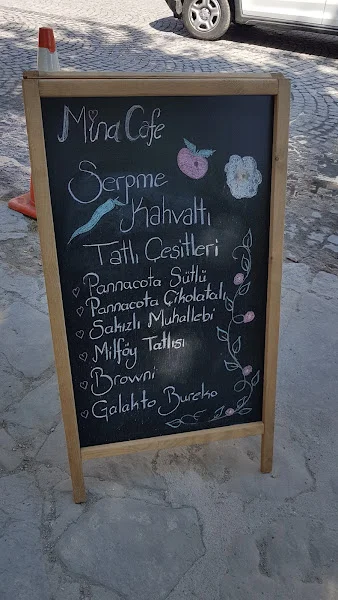 Mina Cafe
Serpme
Kahvaltı
Tatlı Çeşitleri
Pannacota Sütlü
Pannacota Çikolatalı
Sakızlı Muhallebi
Milföy Tatlısı
Browni
Galakto Bureko